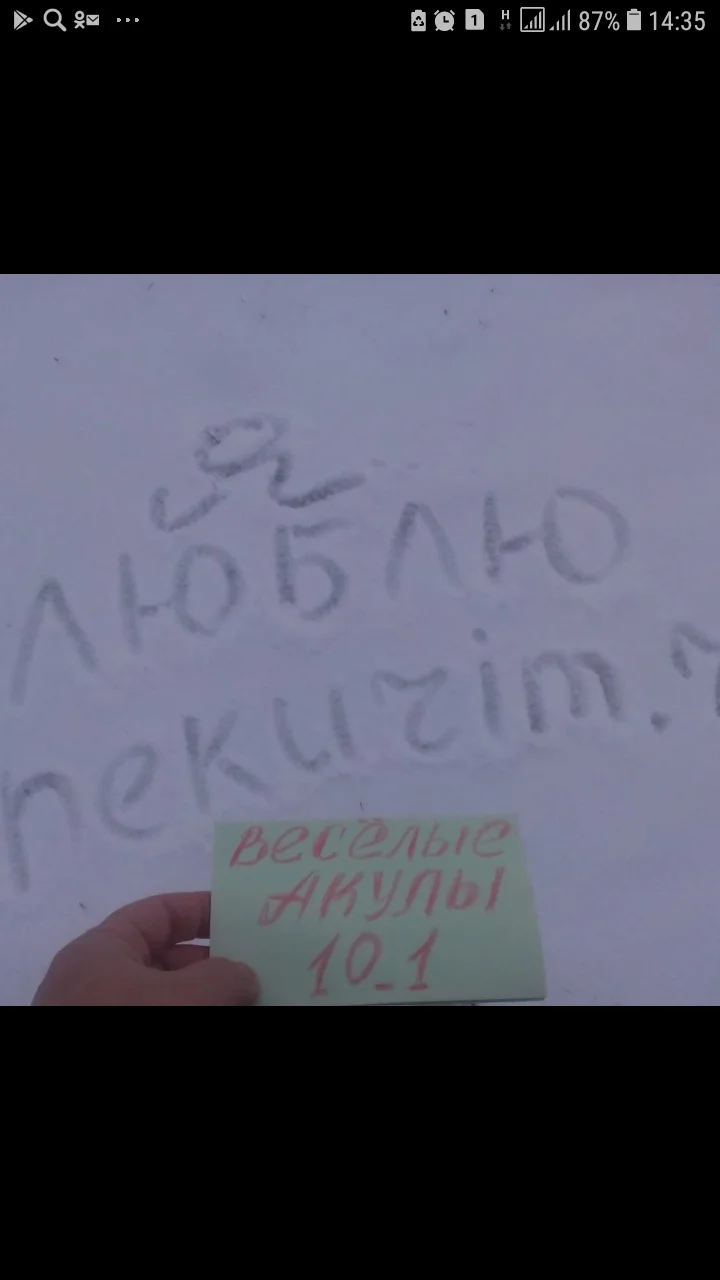 1 H 87% 14:35
Я
ЛЮБЛЮ
ВЕСЁЛЫЕ
АКУЛЫ
10-1